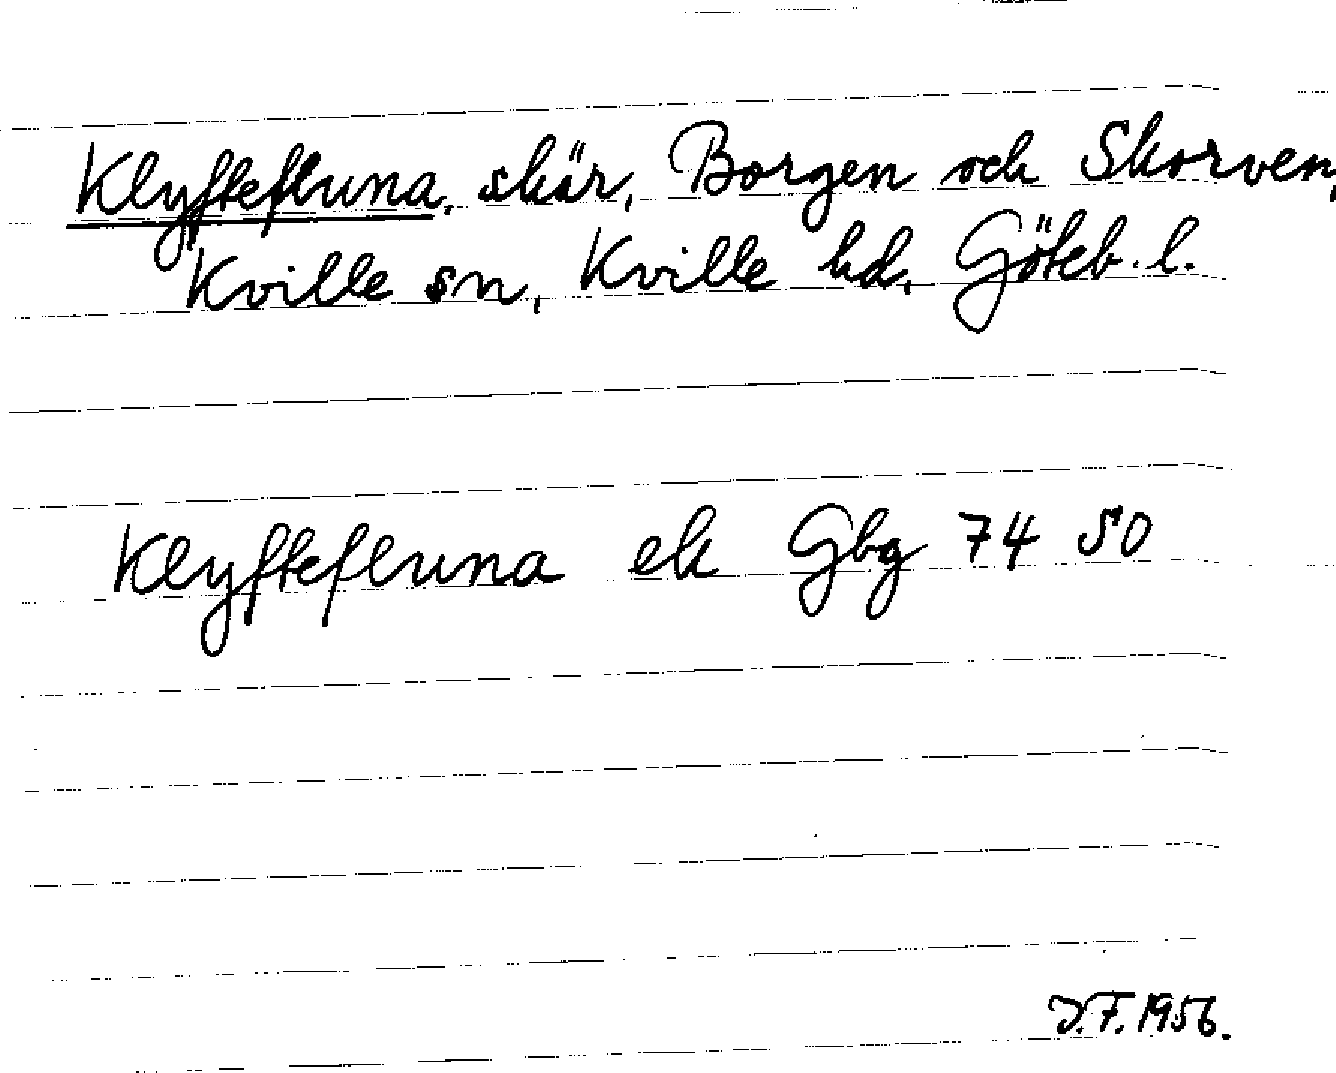 Klyftefluna, skär, Borgen och Skorven,
Kville sn, Kville hd, Göteb. l.
Klyftefluna ek Gbg 74 SO
J.F. 1956.